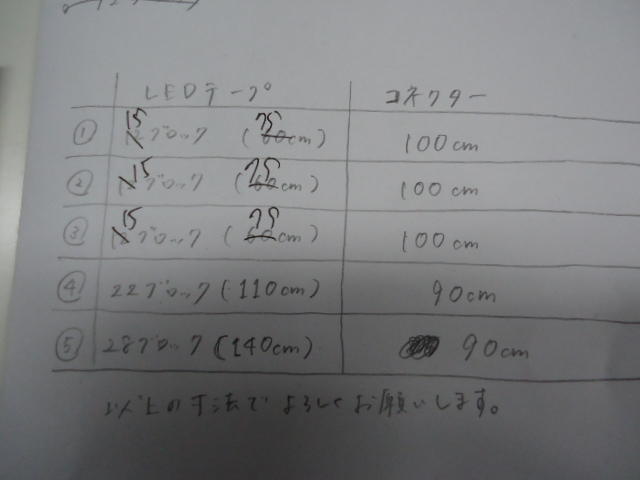 LEDテープ コネクター
① 15ブロック (75cm) 100cm
② 15ブロック (75cm) 100cm
③ 15ブロック (75cm) 100cm
④ 22ブロック (110cm) 90cm
⑤ 28ブロック (140cm) 90cm
以上の寸法でよろしくお願いします。